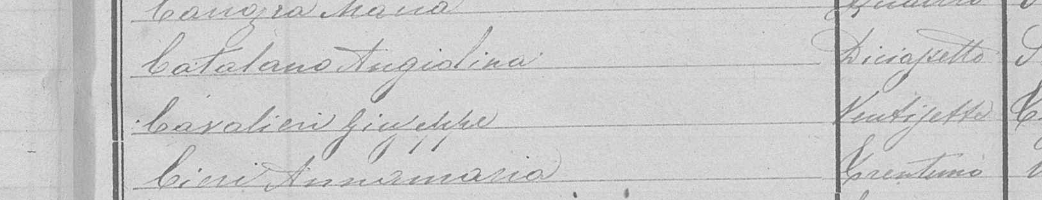 Maria
Catalano Angiolina Diciasette
Cavalieri Giuseppe Ventisette
Cieri Annamaria Trentuno